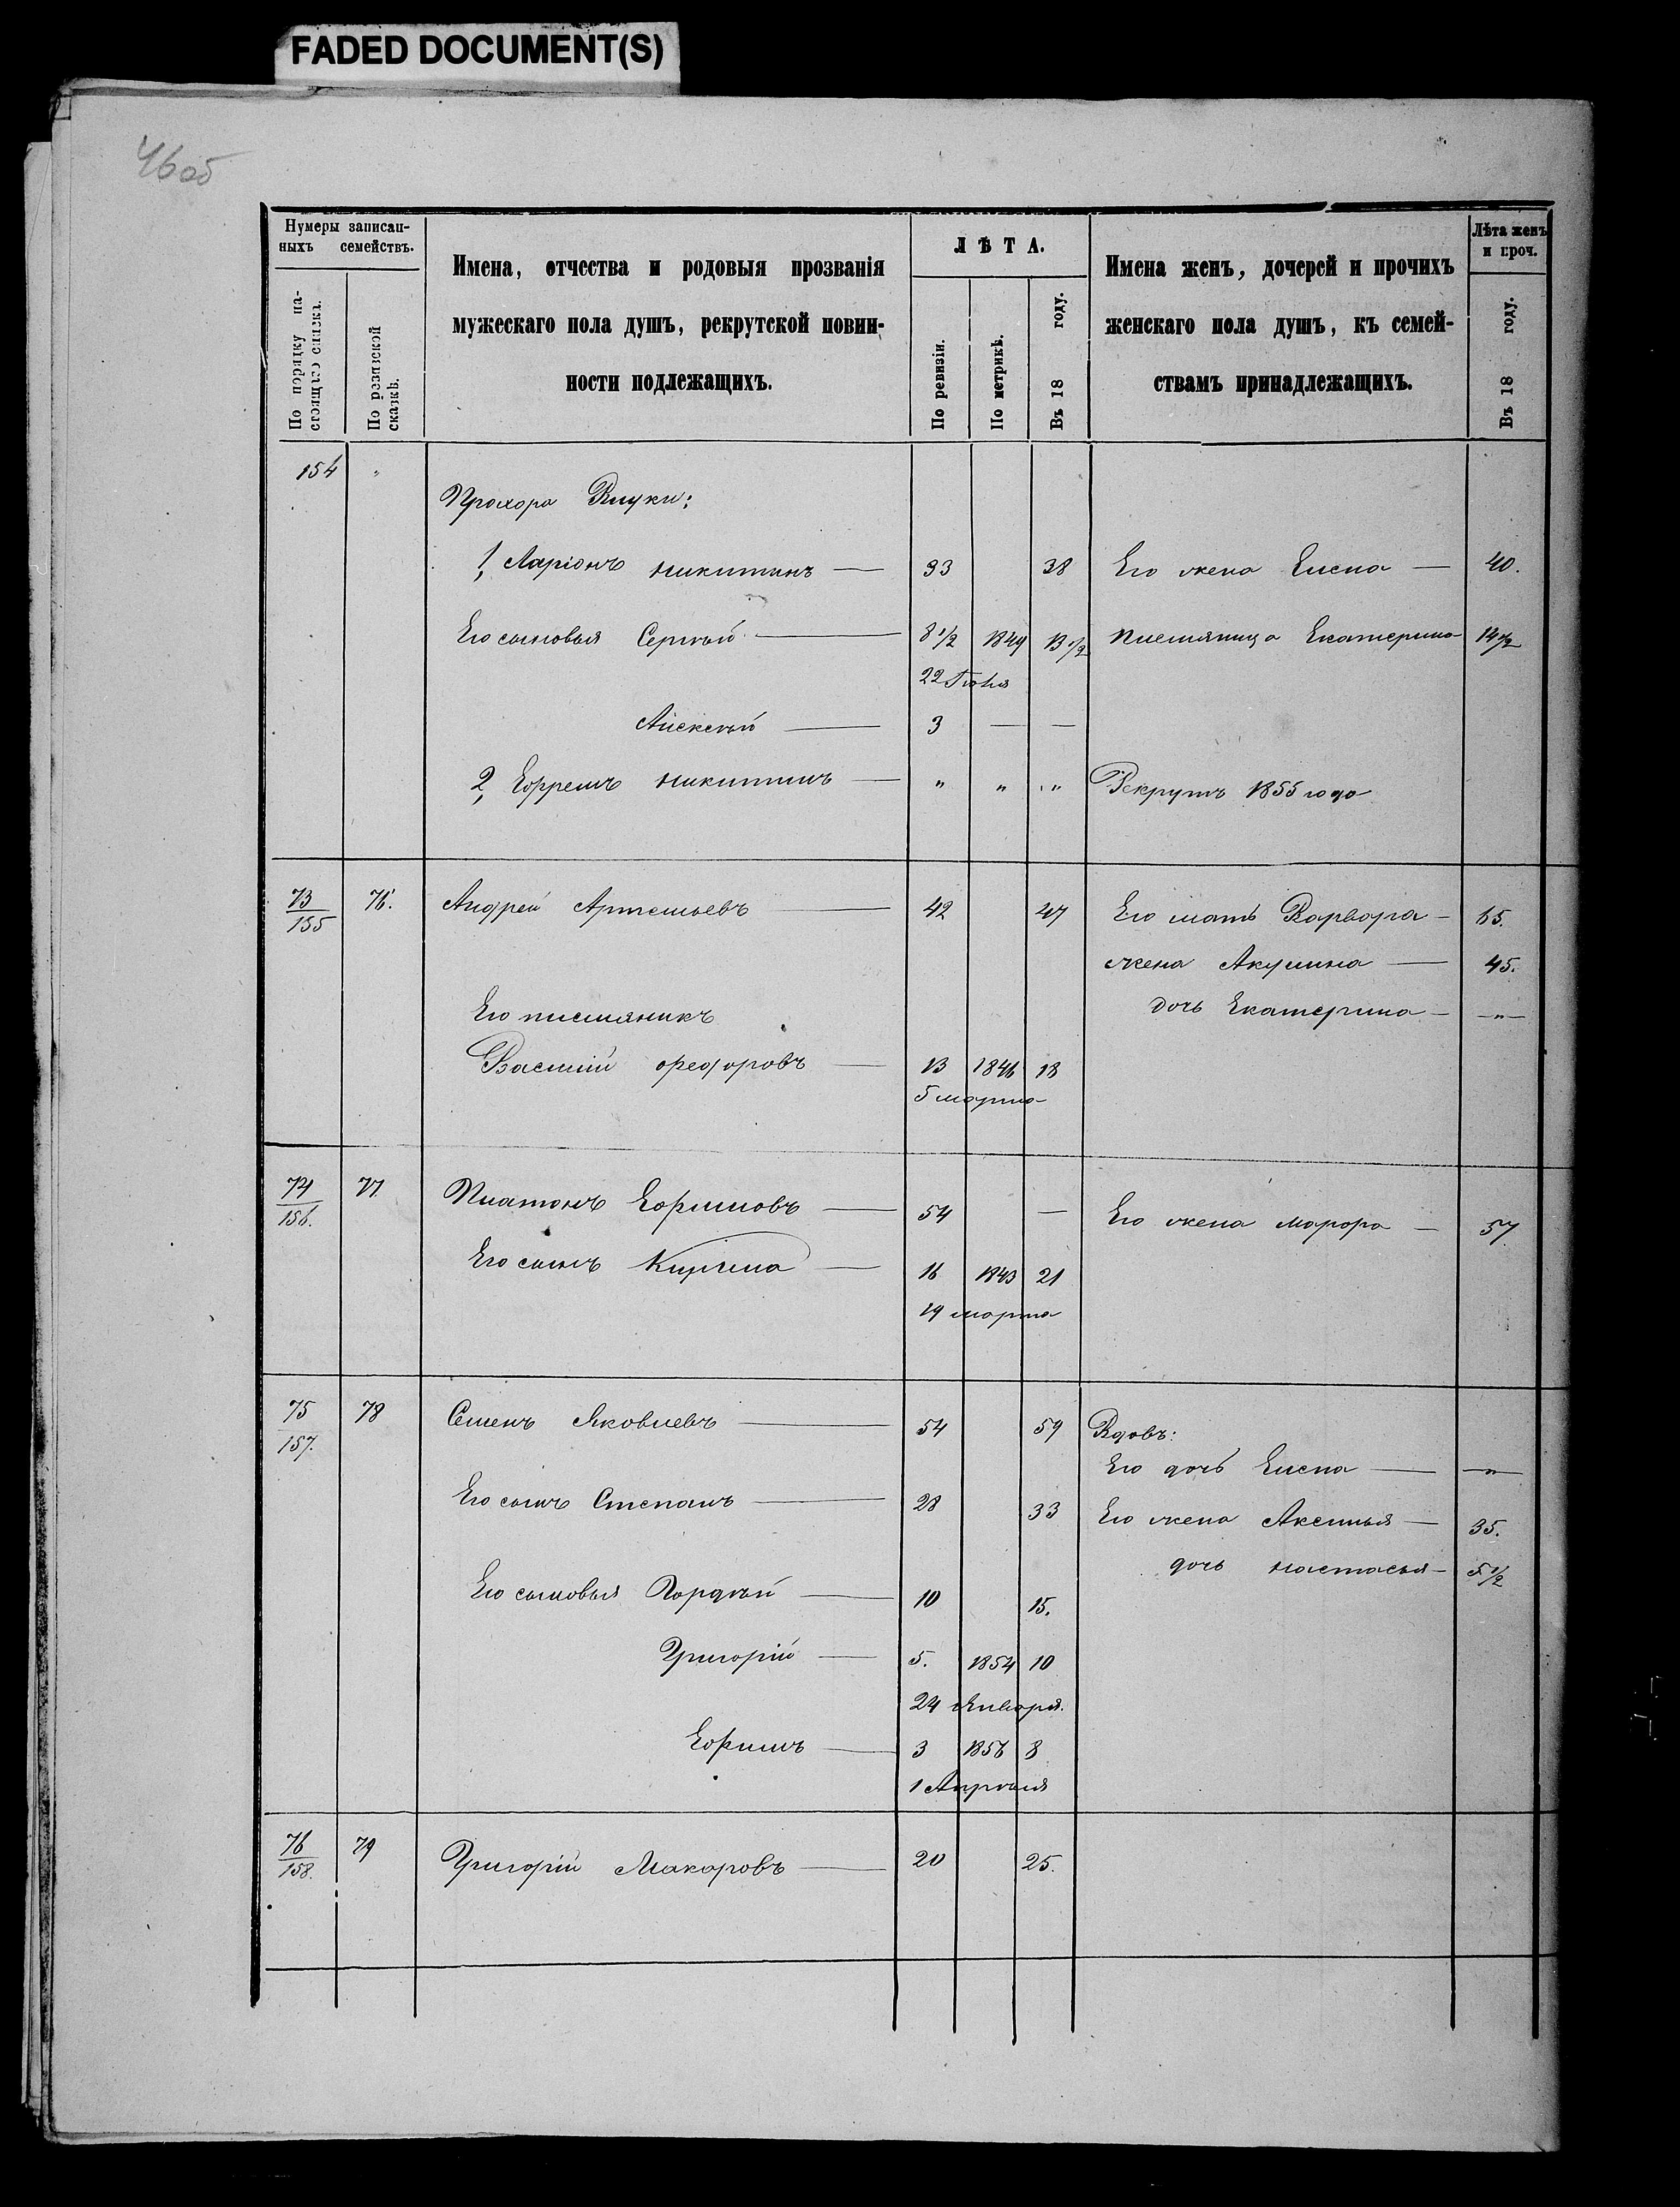 FADED DOCUMENT(S)
46об
Нумеры записан-
ныхъ семействъ.
По порядку на-
стоящаго списка.
По ревизской
сказкѣ.
Имена, отчества и родовыя прозванія
мужескаго пола душъ, рекрутской повин-
ности подлежащихъ.
ЛѢТА.
По ревизіи.
По метрикѣ.
Въ 18 году.
Имена женъ, дочерей и прочихъ
женскаго пола душъ, къ семей-
ствамъ принадлежащихъ.
Лѣта женъ
и проч.
Въ 18 году.
154 "
Прохора Внуки:
1, Ларіонъ Никитинъ — 33 38 Его жена Елена — 40.
Его сыновья Сергѣй — 8 1/2 1849 13 1/2 племяница Екатерина 14 1/2
22 Іюня
Алексѣй — 3 — —
2, Ефремъ Никитинъ — " " " Рекрутъ 1855 года
73/155 76. Андрей Артемьевъ — 42 47 Его мать Варвара — 65.
жена Акулина — 45.
Его племяникъ дочь Екатерина — —"—
Василій Федоровъ — 13 1846 18
5 марта
74/156. 77. Платонъ Ефимовъ — 54 — Его жена Марфа — 57
Его сынъ Кирила — 16 1843 21
19 марта
75/157. 78 Семенъ Яковлевъ — 54 59 Вдовъ:
Его дочь Елена — —"—
Его сынъ Степанъ — 28 33 Его жена Аксинья — 35.
дочь Настасья — 5 1/2
Его сыновья Гордѣй — 10 15.
Григорій — 5. 1854 10
24 Января.
Ефимъ — 3 1856 8
1 Апрѣля
76/158. 79 Григорій Макаровъ — 20 25.